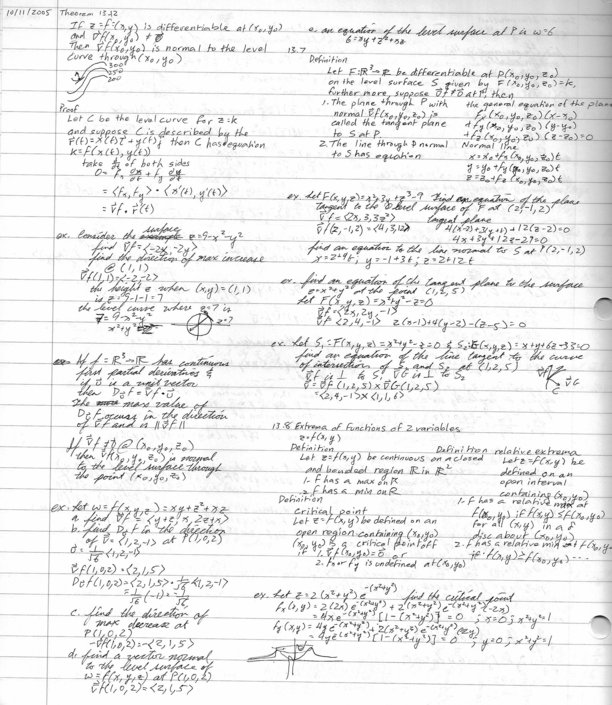 10/11/2005 Theorem 13.12
If z=f(x,y) is differentiable at (x₀,y₀)
and ∇f(x₀,y₀) ≠ 0
Then ∇f(x₀,y₀) is normal to the level
curve through (x₀,y₀)
300
250
200
Proof
Let C be the level curve for z=k
and suppose C is described by the
r(t)=x(t)i+y(t)j then C has equation
k=f(x(t),y(t))
take d/dt of both sides
0= fx ∂x/∂t + fy ∂y/∂t
= <fx,fy> · <x'(t), y'(t)>
= ∇f · r'(t)
surface
ex. Consider the z=9-x²-y²
find ∇f=<-2x,-2y>
find the direction of max increase
@ (1,1)
∇f(1,1)=<-2,-2>
the height z when (x,y)=(1,1)
is z=9-1-1=7
the level curve where z=7 is
7=9-x²-y²
x²+y²=2
z=7
If f=ℝ³→ℝ has continuous
first partial derivatives &
if u is a unit vector
then Duf=∇f·u
The max value of
Duf occurs in the direction
of ∇f and is ||∇f||
If ∇f≠0 @ (x₀,y₀,z₀)
then ∇f(x₀,y₀,z₀) is normal
to the level surface through
the point (x₀,y₀,z₀)
ex. Let w=f(x,y,z)=xy+z²+xz
a. find ∇f=<y+z, x, 2z+x>
b. find Duf in the direction
of v=<1,2,-1> at P(1,0,2)
u=1/√6 <1,2,-1>
∇f(1,0,2)=<2,1,5>
Duf(1,0,2)=<2,1,5>·1/√6<1,2,-1>
=1/√6(-1)=-1/√6
c. find the direction of
max decrease at
P(1,0,2)
-∇f(1,0,2)=-<2,1,5>
d. find a vector normal
to the level surface of
w=f(x,y,z) at P(1,0,2)
∇f(1,0,2)=<2,1,5>
e. an equation of the level surface at P is w=6
6=xy+z²+xz
13.7
Definition
Let F:ℝ³→ℝ be differentiable at P(x₀,y₀,z₀)
on the level surface S given by F(x₀,y₀,z₀)=k,
further more, suppose ∇f≠0 at P, then
1. The plane through P with
normal ∇f(x₀,y₀,z₀) is
called the tangent plane
to S at P.
2. The line through P normal
to S has equation
the general equation of the plane
fx(x₀,y₀,z₀)(x-x₀)
+fy(x₀,y₀,z₀)(y-y₀)
+fz(x₀,y₀,z₀)(z-z₀)=0
Normal line
x=x₀+fx(x₀,y₀,z₀)t
y=y₀+fy(x₀,y₀,z₀)t
z=z₀+fz(x₀,y₀,z₀)t
ex. Let F(x,y,z)=x²+3y+z³-9 Find an equation of the plane
tangent to the 0 level surface of F at (2,-1,2)
∇f=<2x,3,3z²> tangent plane
∇f(2,-1,2)=<4,3,12> 4(x-2)+3(y+1)+12(z-2)=0
4x+3y+12z-29=0
find an equation to the line normal to S at P(2,-1,2)
x=2+4t; y=-1+3t; z=2+12t
ex. find an equation of the tangent plane to the surface
z=x²+y² at the point (1,2,5)
Let F(x,y,z)=x²+y²-z=0
∇f=<2x,2y,-1>
∇f<2,4,-1> 2(x-1)+4(y-2)-(z-5)=0
ex. Let S₁=F(x,y,z)=x²+y²-z=0 & S₂:G(x,y,z)=x+y+6z-33=0
find an equation of the line tangent to the curve
of intersection of S₁ and S₂ at (1,2,5)
∇F is ⊥ to S₁ ∇G is ⊥ to S₂
v=∇F(1,2,5)×∇G(1,2,5)
=<2,4,-1>×<1,1,6>
∇F
∇G
C
13.8 Extrema of Functions of 2 variables
z=f(x,y)
Definition
Let z=f(x,y) be continuous on a closed
and bounded region R in ℝ²
1. f has a max on R
2. f has a min on R
Definition relative extrema
Let z=f(x,y) be
defined on an
open interval
containing (x₀,y₀)
1. f has a relative max at
f(x₀,y₀) if f(x,y)≤f(x₀,y₀)
for all (x,y) in a
disc about (x₀,y₀)
2. f has a relative min at f(x₀,y₀)
if f(x,y)≥f(x₀,y₀)...
Definition
Critical point
Let z=f(x,y) be defined on an
open region containing (x₀,y₀)
(x₀,y₀) is a critical point of f
if 1. ∇f(x₀,y₀)=0 or
2. fx or fy is undefined at (x₀,y₀)
ex. Let z=2(x²+y²)e^-(x²+y²) find the critical point
fx(x,y)=2(2x)e^-(x²+y²)+2(x²+y²)e^-(x²+y²)(-2x)
=4xe^-(x²+y²)[1-(x²+y²)]=0; x=0; x²+y²=1
fy(x,y)=4ye^-(x²+y²)+2(x²+y²)e^-(x²+y²)(-2y)
=4ye^-(x²+y²)[1-(x²+y²)]=0; y=0; x²+y²=1